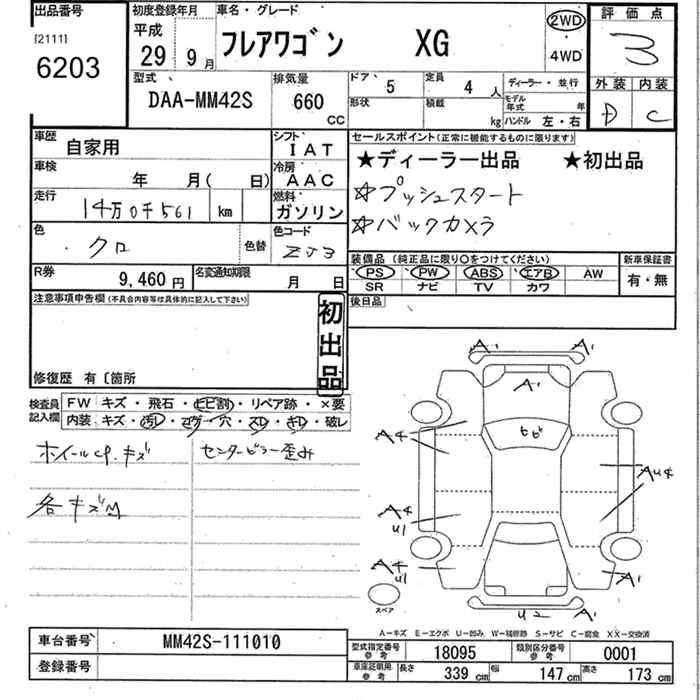 出品番号
[21111]
6203
初度登録年月
平成
29 9月
車名・グレード
フレアワゴン XG
2WD
4WD
評価点
3
外装 内装
D C
型式
DAA-MM42S
排気量
660
CC
ドア 5
形状
定員 4 人
積載 kg
ディーラー・並行
モデル年式 年
ハンドル 左・右
車歴 自家用
車検 年 月( 日)
走行 14万0千561 km
色 クロ 色替
シフト IAT
冷房 AAC
燃料 ガソリン
色コード ZJ3
R券 9,460円
名変通知期限 月 日
セールスポイント(正常に機能するものに限ります)
★ディーラー出品 ★初出品
☆プッシュスタート
☆バックカメラ
装備品(純正品に限り○をつけてください)
PS PW ABS エアB AW
SR ナビ TV カワ
新車保証書
有・無
後日品
注意事項申告欄(不具合内容等は具体的に記入して下さい)
初出品
修復歴 有〔箇所
検査員記入欄
FW キズ・飛石・ヒビ割・リペア跡・×要
内装 キズ・汚レ・コゲ・穴・スレ・キレ・破レ
ホイールCP.キズ
センターピラー歪み
各キズM
A' A'
A'
ヒビ
A4
AU4
A4
U1
A4
U1
A'
U2 A'
スペア
A-キズ E-エクボ U-凹み W-補修跡 S-サビ C-腐食 XX-交換済
車台番号 MM42S-111010
登録番号
型式指定番号 参考 18095
類別区分番号 参考 0001
車庫証明用 参考
長さ 339 cm 幅 147 cm 高さ 173 cm